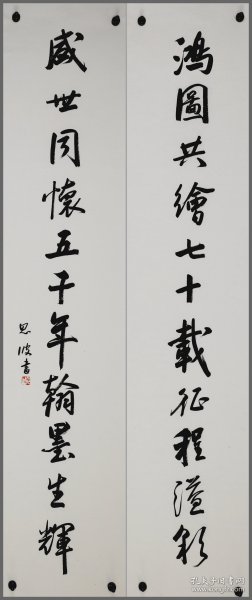 鴻圖共繪七十載征程溢彩
盛世同懷五千年翰墨生輝
思波書